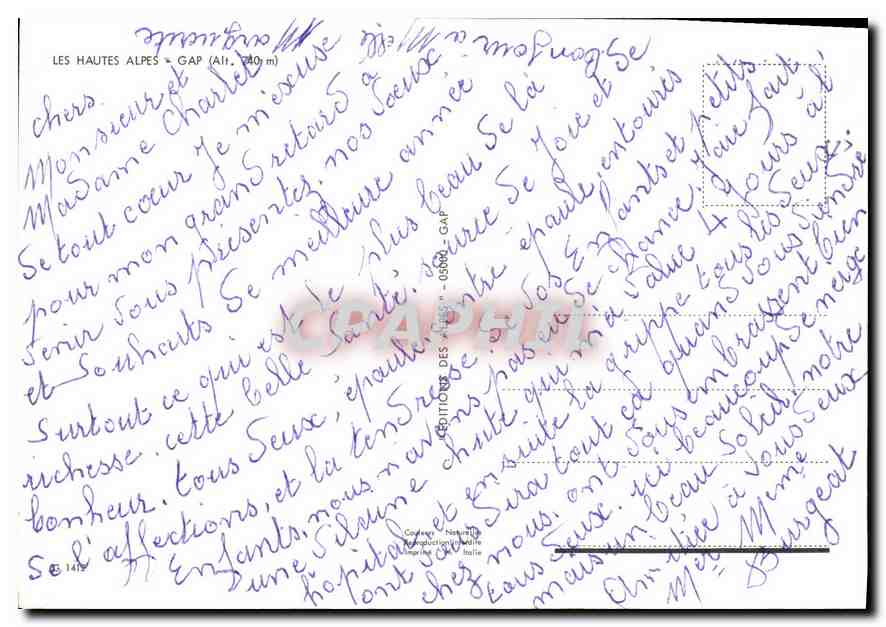 LES HAUTES ALPES - GAP (Alt. 740 m)
Bonjour à Melle Marguerite
chers
Monsieur et
Madame Charlet
De tout cœur Je m'excuse
pour mon grand retard à
venir vous présentez nos voeux
et Souhaits de meilleure année
Surtout ce qui est le plus beau de la
richesse. cette belle Santé. source de Joie et de
bonheur. tous deux, épaule entre épaule, entourés
de l'affections, et la tendresse de vos Enfants et petits
Enfants. nous n'avons pas eu de chance. J'aie fait
d'une chute qui m'a value 4 Jours à l'
hôpital, et ensuite la grippe tous les deux.
ont vous dira tout ça quand vous viendre
chez nous. ont vous embrassent bien
tous deux. ici beaucoup de neige
mais un beau Soleil. notre
Amitiée à vous deux
Mr Meme
Bourgeat
"EDITIONS DES ALPES" - 05000 - GAP
Couleurs Naturelles
Reproduction interdite
Imprimé en Italie
CPAPHIL